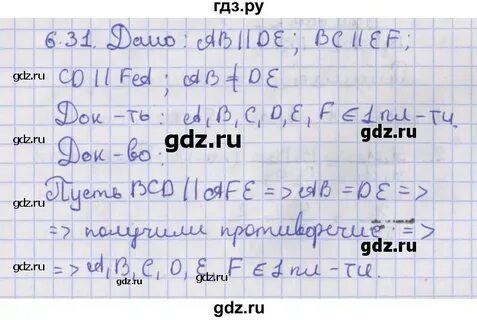 гдз.ру
6.31. Дано: AB || DE; BC || EF;
CD || FA; AB ≠ DE
Док-ть: A, B, C, D, E, F ∈ 1 пл-ти.
gdz.ru gdz.ru
Док-во:
Пусть BCD || AFE => AB = DE =>
=> получили противоречие =>
gdz.ru gdz.ru
=> A, B, C, D, E, F ∈ 1 пл-ти.
gdz.ru gdz.ru